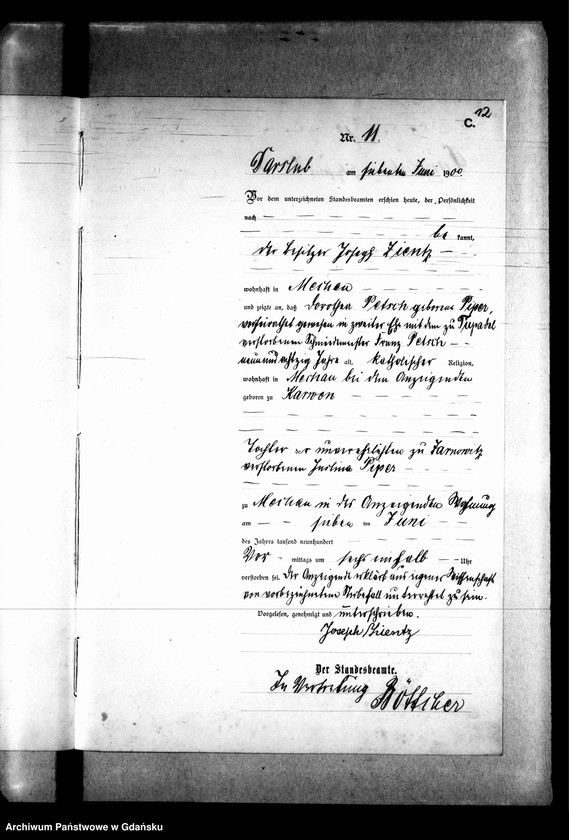 12
C.
Nr. 11.
Darslub am siebenten Juni 1900
Vor dem unterzeichneten Standesbeamten erschien heute, der Persönlichkeit
nach
be kannt,
der Besitzer Joseph Bientz
wohnhaft in Mechau
und zeigte an, daß Dorothea Petsch geborene Peper,
verheirathet gewesen in zweiter Ehe mit dem zu Tupadel
verstorbenen Schmiedemeister Franz Petsch
neunundachtzig Jahre alt, katholischer Religion,
wohnhaft in Mechau bei dem Anzeigenden
geboren zu Karwen
Tochter der unverehelichten zu Zarnowitz
verstorbenen Justina Peper
zu Mechau in des Anzeigenden Wohnung
am sieben ten Juni
des Jahres tausend neunhundert
Vor mittags um sechs einhalb Uhr
verstorben sei. Der Anzeigende erklärt aus eigener Wissenschaft
von vorbezeichnetem Sterbefall unterrichtet zu sein.
Vorgelesen, genehmigt und unterschrieben.
Joseph Bientz
Der Standesbeamte.
In Vertretung Böttcher
Archiwum Państwowe w Gdańsku